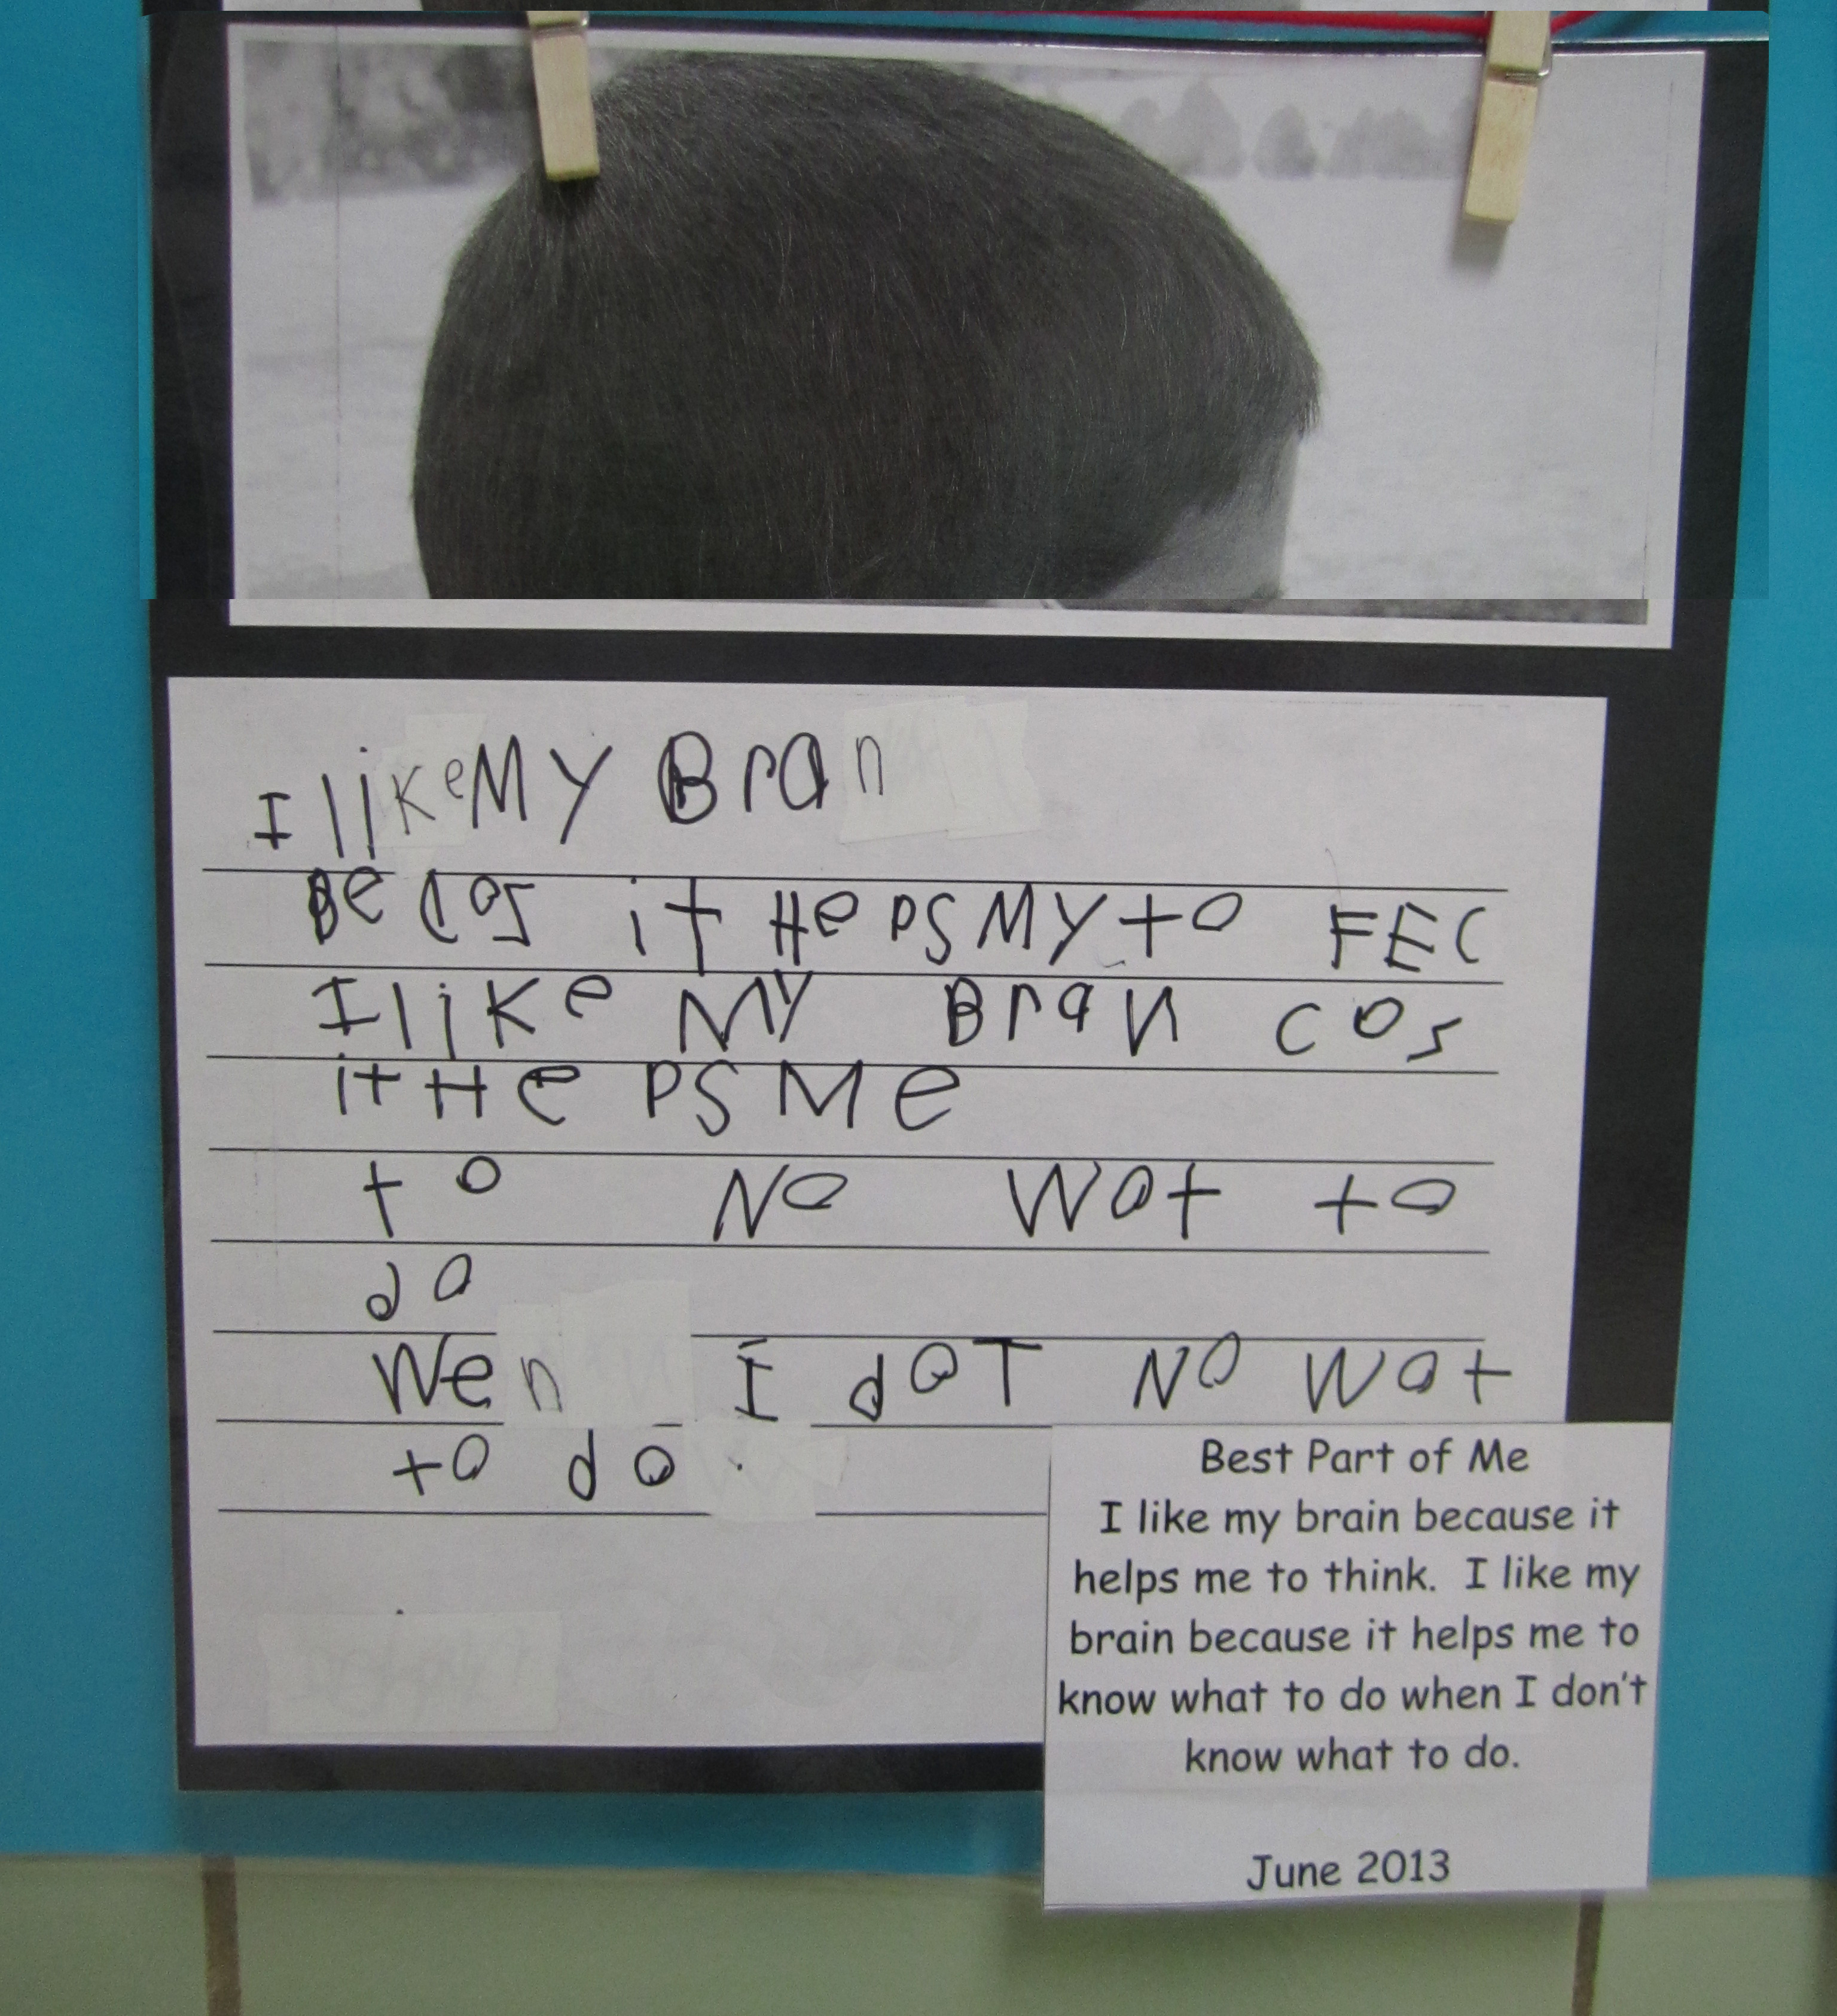 I like My Bran
Becos it HePs My to FEC
I like My Bran cos
it HePs Me
to No Wat to
do
Wen I doT No Wat
to do.
Best Part of Me
I like my brain because it
helps me to think. I like my
brain because it helps me to
know what to do when I don't
know what to do.
June 2013